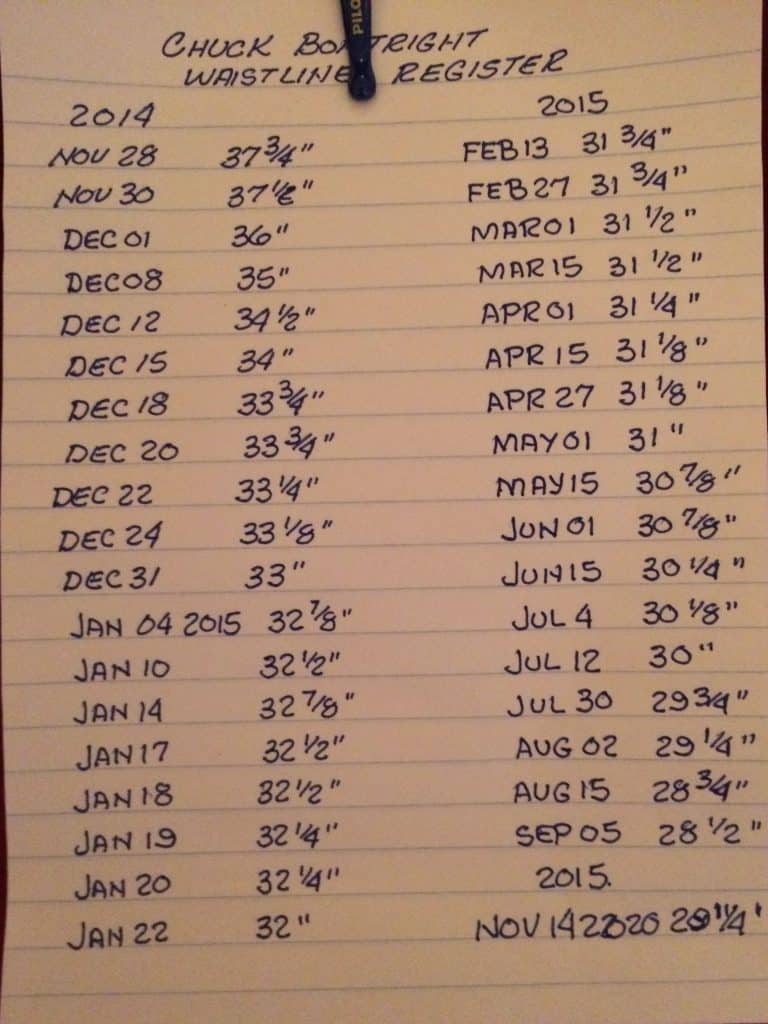 PILO
CHUCK
WAISTLINE REGISTER
2014
NOV 28 37 3/4"
NOV 30 37 1/2"
DEC 01 36"
DEC 08 35"
DEC 12 34 1/2"
DEC 15 34"
DEC 18 33 3/4"
DEC 20 33 3/4"
DEC 22 33 1/4"
DEC 24 33 1/8"
DEC 31 33"
JAN 04 2015 32 7/8"
JAN 10 32 1/2"
JAN 14 32 7/8"
JAN 17 32 1/2"
JAN 18 32 1/2"
JAN 19 32 1/4"
JAN 20 32 1/4"
JAN 22 32"
2015
FEB 13 31 3/4"
FEB 27 31 3/4"
MAR 01 31 1/2"
MAR 15 31 1/2"
APR 01 31 1/4"
APR 15 31 1/8"
APR 27 31 1/8"
MAY 01 31"
MAY 15 30 7/8"
JUN 01 30 7/8"
JUN 15 30 1/4"
JUL 4 30 1/8"
JUL 12 30"
JUL 30 29 3/4"
AUG 02 29 1/4"
AUG 15 28 3/4"
SEP 05 28 1/2"
2015.
NOV 14